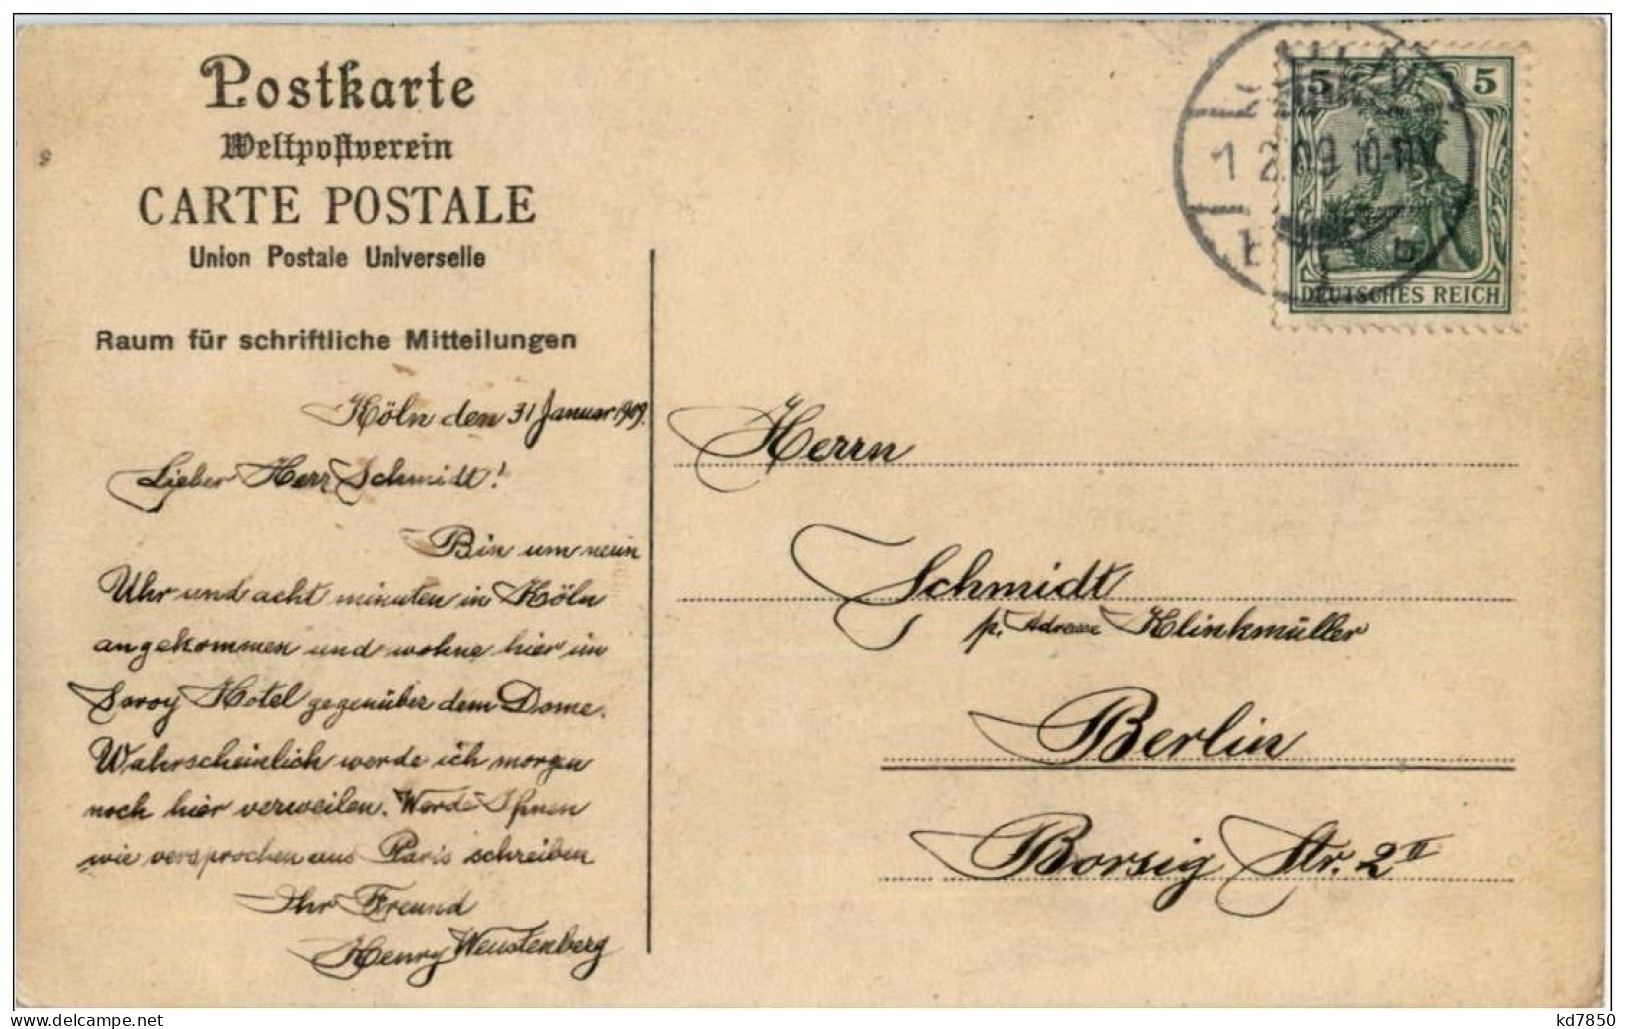 Postkarte
Weltpostverein
CARTE POSTALE
Union Postale Universelle
Raum für schriftliche Mitteilungen
Köln den 31 Januar 1909.
Lieber Herr Schmidt!
Bin um neun
Uhr und acht minuten in Köln
angekommen und wohne hier im
Savoy Hotel gegenüber dem Dome.
Wahrscheinlich werde ich morgen
noch hier verweilen. Werde Ihnen
wie versprochen aus Paris schreiben
Ihr Freund
Henry Weustenberg
5 5
DEUTSCHES REICH
1 2.09. 10-11V
b
Herrn
Schmidt
p. Adresse Klinkmüller
Berlin
Borsig Str. 2 II
kd7850